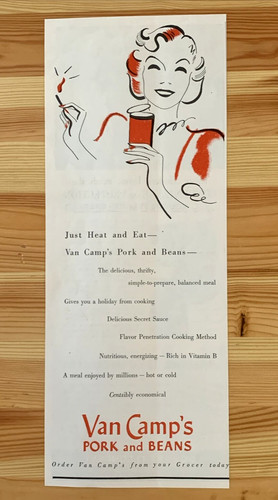 Just Heat and Eat—
Van Camp's Pork and Beans—
The delicious, thrifty,
simple-to-prepare, balanced meal
Gives you a holiday from cooking
Delicious Secret Sauce
Flavor Penetration Cooking Method
Nutritious, energizing — Rich in Vitamin B
A meal enjoyed by millions — hot or cold
Centsibly economical
Van Camp's
PORK and BEANS
Order Van Camp's from your Grocer today